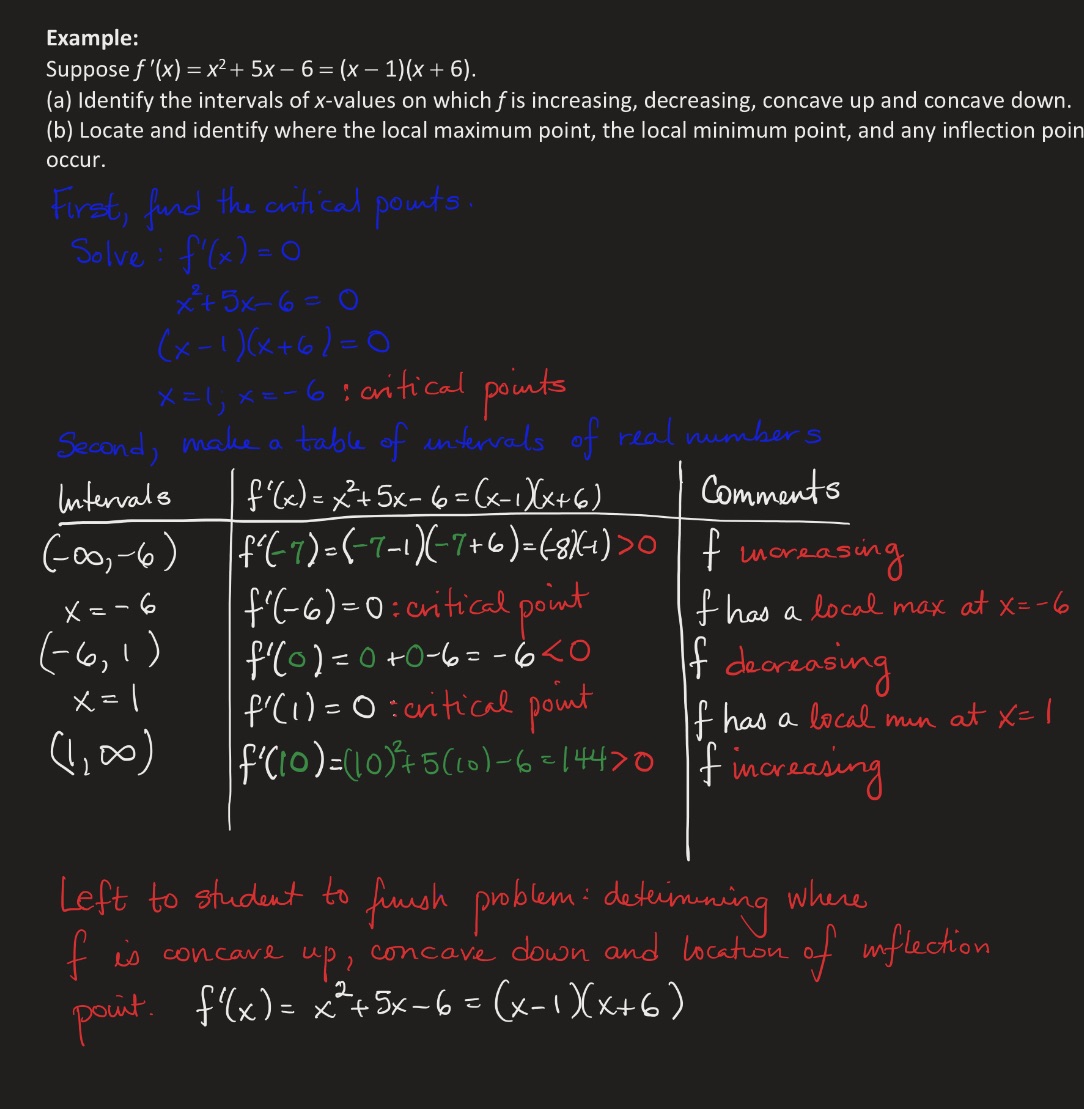 Example:
Suppose f ′(x) = x² + 5x – 6 = (x – 1)(x + 6).
(a) Identify the intervals of x-values on which f is increasing, decreasing, concave up and concave down.
(b) Locate and identify where the local maximum point, the local minimum point, and any inflection poin
occur.
First, find the critical points.
Solve : f'(x) = 0
x²+5x-6 = 0
(x-1)(x+6) = 0
x=1, x=-6 : critical points
Second, make a table of intervals of real numbers
Intervals f'(x) = x²+5x-6 = (x-1)(x+6) Comments
(-∞,-6) f'(-7)=(-7-1)(-7+6)=(-8)(-1)>0 f increasing
x = -6 f'(-6)=0 : critical point f has a local max at x=-6
(-6, 1) f'(0) = 0+0-6 = -6<0 f decreasing
x = 1 f'(1) = 0 : critical point f has a local min at x=1
(1, ∞) f'(10)=(10)²+5(10)-6=144>0 f increasing
Left to student to finish problem: determining where
f is concave up, concave down and location of inflection
point. f'(x) = x²+5x-6 = (x-1)(x+6)